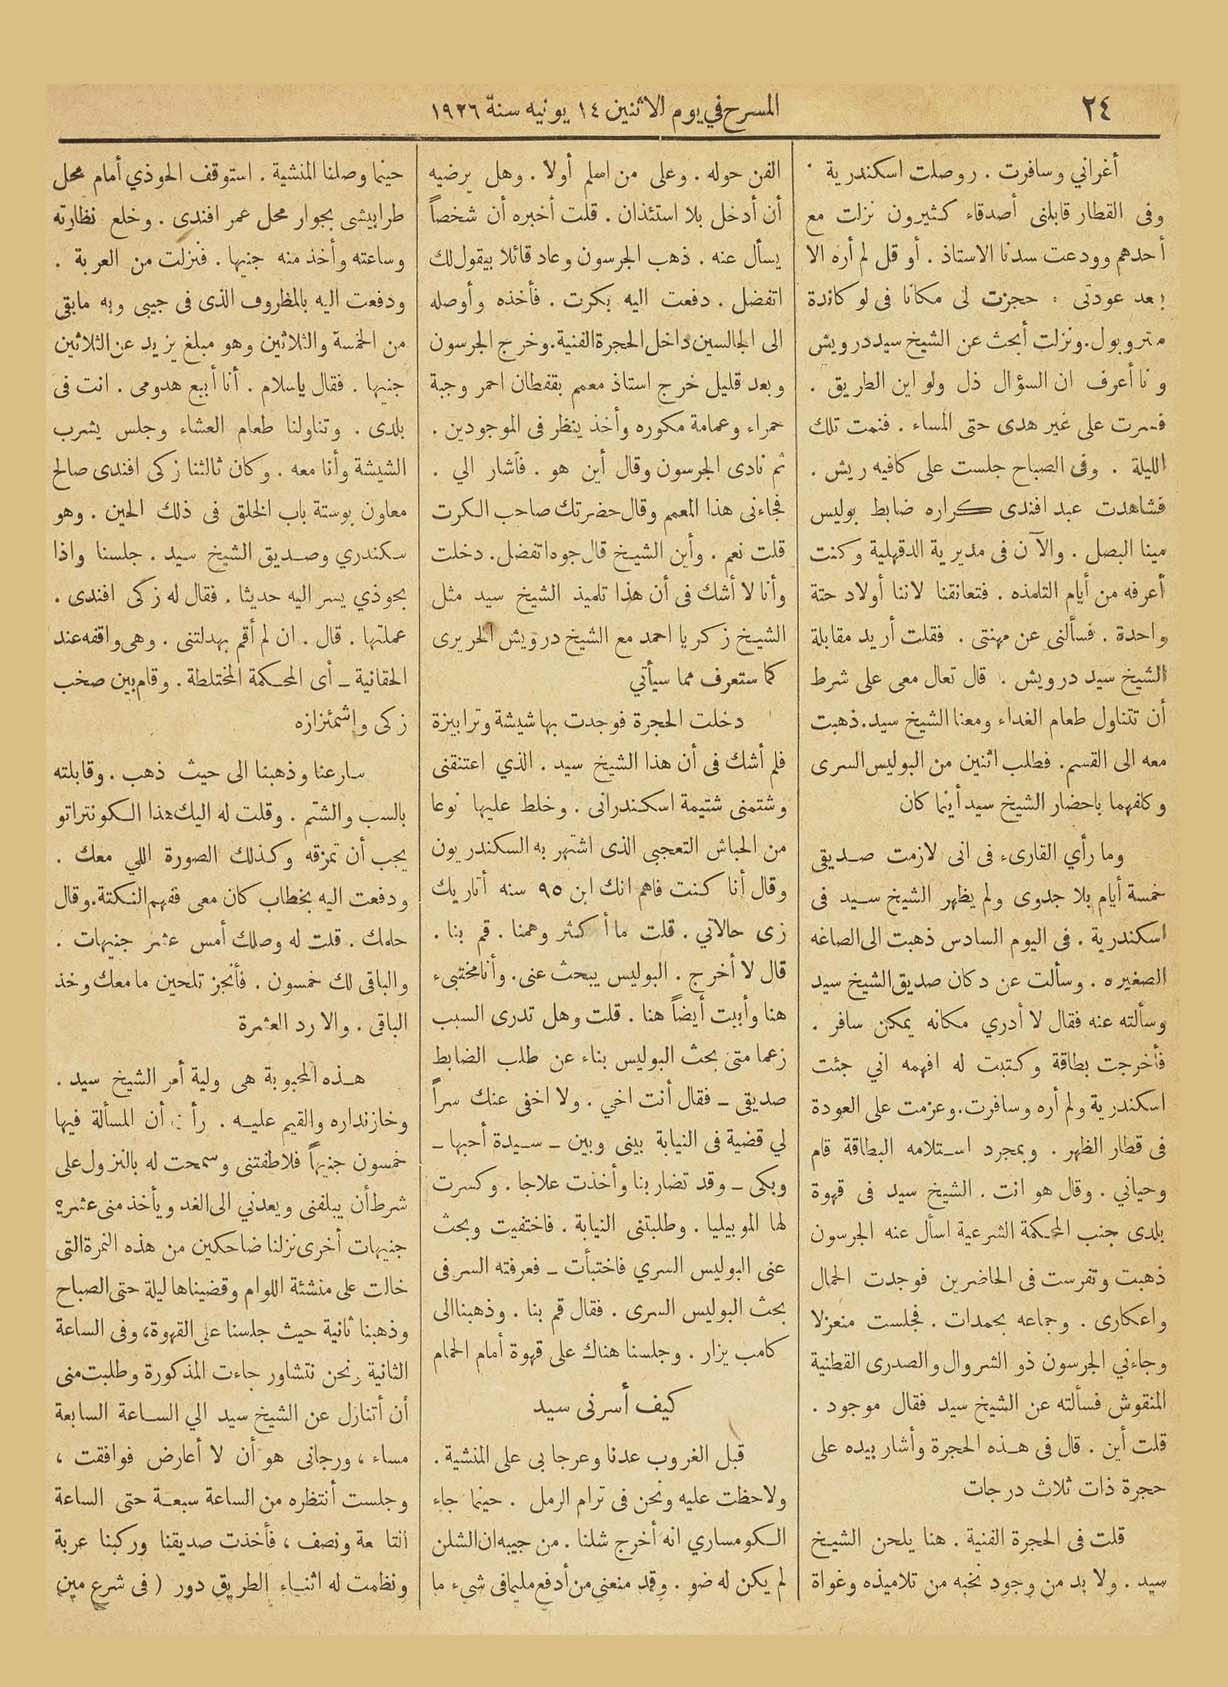 ٢٤
المسرح في يوم الاثنين ١٤ يونيه سنة ١٩٢٦
أغراني وسافرت . ووصلت اسكندرية .
وفى القطار قابلنى أصدقاء كثيرون نزلت مع
أحدهم وودعت سدنا الاستاذ . أو قل لم أره الا
بعد عودتى . حجزت لى مكانا فى لوكاندة
متروبول.ونزلت أبحث عن الشيخ سيد درويش
وأنا أعرف ان السؤال ذل ولو اين الطريق .
فسرت على غير هدى حتى المساء . فنمت تلك
الليلة . وفى الصباح جلست على كافيه ريش .
فشاهدت عبد افندى كراره ضابط بوليس
مينا البصل . والآن فى مديرية الدقهلية وكنت
أعرفه من أيام التلمذه . فتعانقنا لاننا أولاد حتة
واحدة . فسألنى عن مهنتى . فقلت أريد مقابلة
الشيخ سيد درويش . قال تعال معى على شرط
أن تتناول طعام الغداء ومعنا الشيخ سيد.ذهبت
معه الى القسم. فطلب اثنين من البوليس السرى
وكلفهما باحضار الشيخ سيد أينما كان
وما رأي القارىء فى انى لازمت صديقى
خمسة أيام بلا جدوى ولم يظهر الشيخ سيد فى
اسكندرية . فى اليوم السادس ذهبت الى الصاغه
الصغيره . وسألت عن دكان صديق الشيخ سيد
وسألته عنه فقال لا أدري مكانه يمكن سافر .
فأخرجت بطاقة وكتبت له افهمه اني جئت
اسكندرية ولم أره وسافرت.وعزمت على العودة
فى قطار الظهر . وبمجرد استلامه البطاقة قام
وحياني . وقال هو انت . الشيخ سيد فى قهوة
بلدى جنب المحكمة الشرعية اسأل عنه الجرسون
ذهبت وتفرست فى الحاضرين فوجدت الحمال
واعكارى . وجماعه بحمدات . فجلست منعزلا
وجاءني الجرسون ذو الشروال والصدرى القطنية
المنقوش فسألته عن الشيخ سيد فقال موجود .
قلت أين . قال فى هذه الحجرة وأشار بيده على
حجرة ذات ثلاث درجات
قلت فى الحجرة الفنية . هنا يلحن الشيخ
سيد . ولا بد من وجود نخبه من تلاميذه وغواة
الفن حوله . وعلى من اسلم أولا . وهل يرضيه
أن أدخل بلا استئذان . قلت أخبره أن شخصاً
يسأل عنه . ذهب الجرسون وعاد قائلا بيقول لك
اتفضل . دفعت اليه بكرت . فأخذه وأوصله
الى الجالسين داخل الحجرة الفنية.وخرج الجرسون
وبعد قليل خرج استاذ معمم بقفطان احمر وجبة
حمراء وعمامة مكوره وأخذ ينظر فى الموجودين .
ثم نادى الجرسون وقال أين هو . فأشار الي .
فجاءنى هذا المعمم وقال حضرتك صاحب الكرت
قلت نعم . وأين الشيخ قال جوه اتفضل. دخلت
وأنا لا أشك فى أن هذا تلميذ الشيخ سيد مثل
الشيخ زكريا احمد مع الشيخ درويش الحريرى
كما ستعرف مما سيأتي
دخلت الحجرة فوجدت بها شيشة وترابيزة
فلم أشك فى أن هذا الشيخ سيد . الذي اعتنقنى
وشتمنى شتيمة اسكندرانى . وخلط عليها نوعا
من الحباش التعجبى الذى اشتهر به السكندريون
وقال أنا كنت فاهم انك ابن ٩٥ سنه أتاريك
زى حالاتي . قلت ما أكثر وهمنا . قم بنا .
قال لا أخرج . البوليس يبحث عنى. وأنا مختبىء
هنا وأبيت أيضاً هنا . قلت وهل تدرى السبب
زعما متى بحث البوليس بناء عن طلب الضابط
صديقى ــ فقال أنت اخي . ولا اخفى عنك سراً
لي قضية فى النيابة بينى وبين ــ سيدة أحبها ــ
وبكى ــ وقد تضاربنا وأخذت علاجا . وكسرت
لها الموبيليا . وطلبتنى النيابة . فاختفيت وبحث
عنى البوليس السري فاختبأت ــ فعرفته السر فى
بحث البوليس السرى . فقال قم بنا . وذهبنا الى
كامب يزار . وجلسنا هناك على قهوة أمام الحمام
كيف أسرنى سيد
قبل الغروب عدنا وعرجا بى على المنشية .
ولاحظت عليه ونحن فى ترام الرمل . حينما جاء
الكومساري انه أخرج شلنا . من جيبه ان الشلن
لم يكن له ضو . وقد منعني من أدفع مليما فى شىء ما
حينما وصلنا المنشية . استوقف الحوذي أمام محل
طرابيشى بجوار محل عمر افندى . وخلع نظارته
وساعته وأخذ منه جنيها . فنزلت من العربة .
ودفعت اليه بالمظروف الذى فى جيبى وبه مابقى
من الخمسة والثلاثين وهو مبلغ يزيد عن الثلاثين
جنيها . فقال ياسلام . أنا أبيع هدومى . انت فى
بلدى . وتناولنا طعام العشاء وجلس يشرب
الشيشة وأنا معه . وكان ثالثنا زكى افندى صالح
معاون بوستة باب الخلق فى ذلك الحين . وهو
سكندري وصديق الشيخ سيد . جلسنا واذا
بحوذي يسر اليه حديثا . فقال له زكى افندى .
عملتها . قال . ان لم أقم بهدلتنى . وهى واقفه عند
الحقانية ــ أى المحكمة المختلطة . وقام بين صخب
زكى واشمئزازه
سارعنا وذهبنا الى حيث ذهب . وقابلته
بالسب والشتم . وقلت له اليك هذا الكونتراتو
يجب أن تمزقه وكذلك الصورة اللي معك .
ودفعت اليه بخطاب كان معى ففهم النكتة.وقال
حلمك . قلت له وصلك أمس عشر جنيهات .
والباقى لك خمسون . فأنجز تلحين ما معك وخذ
الباقى . والا رد العشرة
هذه المحبوبة هى ولية أمر الشيخ سيد .
وخازنداره والقيم عليه . رأت أن المسألة فيها
خمسون جنيهاً فلاطفتنى وسمحت له بالنزول على
شرط أن يبلفنى ويعدني الى الغد ويأخذ منى عشره
جنيهات أخرى نزلنا ضاحكين من هذه النمرة التى
خالت على منشئة اللوام وقضيناها ليلة حتى الصباح
وذهبنا ثانية حيث جلسنا على القهوة، وفى الساعة
الثانية ونحن نتشاور جاءت المذكورة وطلبت منى
أن أتنازل عن الشيخ سيد الي الساعة السابعة
مساء ، ورجانى هو أن لا أعارض فوافقت ،
وجلست أنتظره من الساعة سبعة حتى الساعة
التاسعة ونصف ، فأخذت صديقنا وركبنا عربة
ونظمت له اثناء الطريق دور ( فى شرع مين